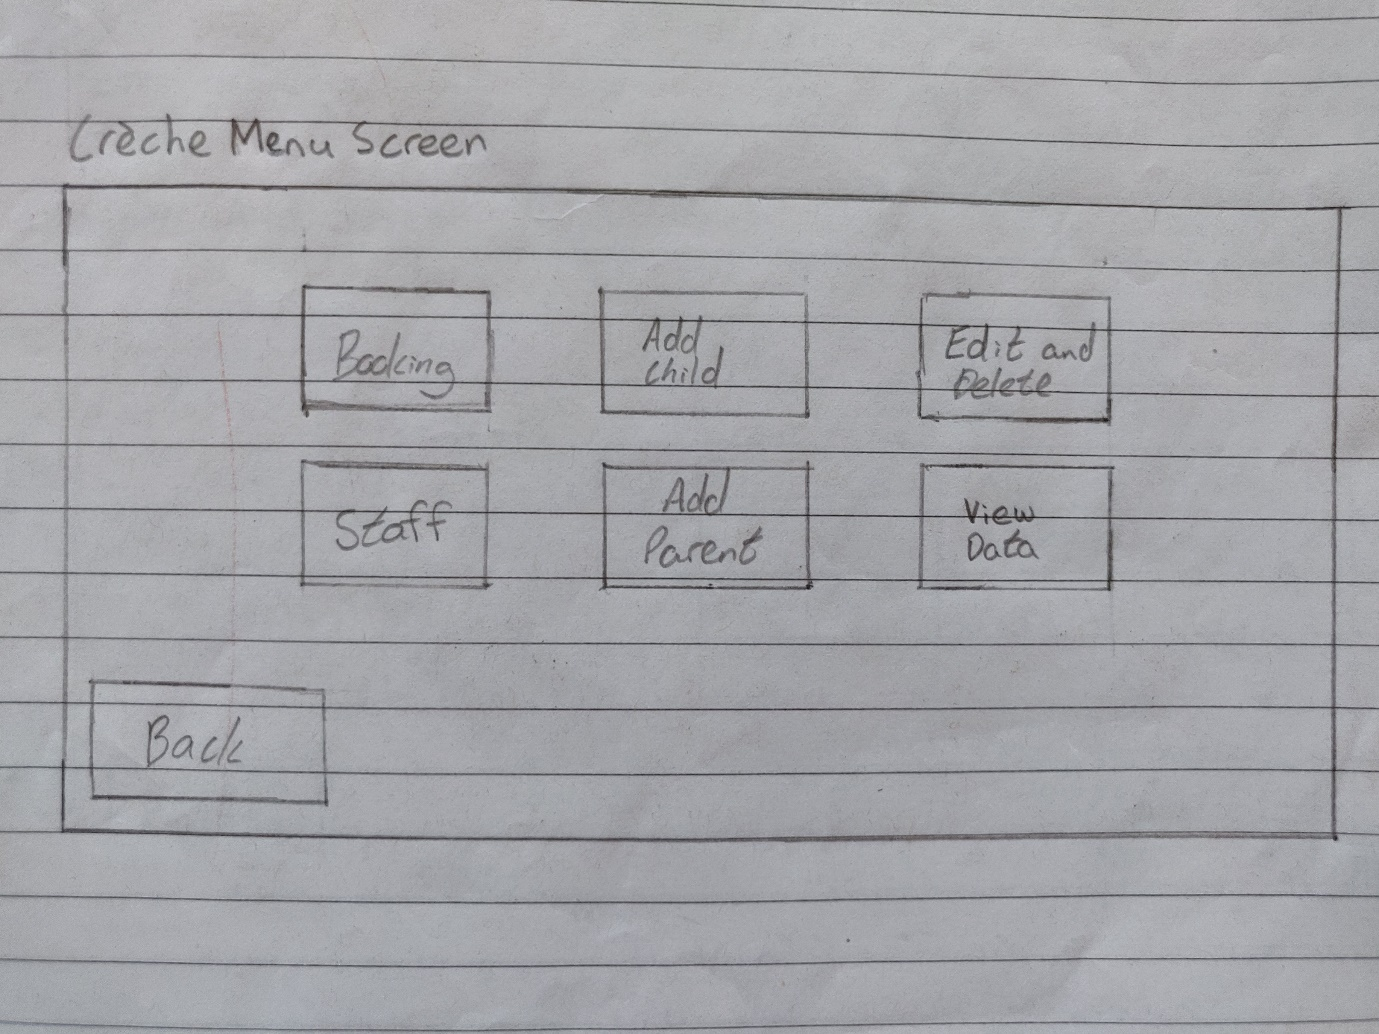 Crèche Menu Screen
Booking
Add
Child
Edit and
Delete
Staff
Add
Parent
View
Data
Back